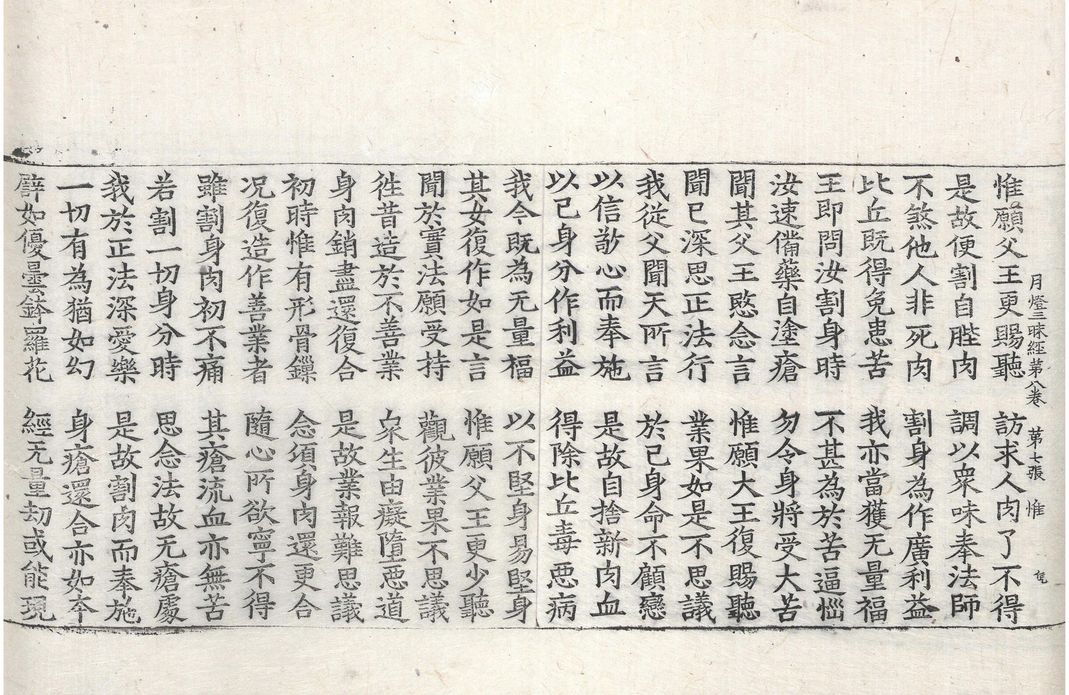 月燈三昧經第八卷 第七張 惟
惟願父王更賜聽 訪求人肉了不得
是故便割自䏶肉 調以衆味奉法師
不煞他人非死肉 割身為作廣利益
比丘既得免患苦 我亦當獲无量福
王即問汝割身時 不甚為於苦逼惱
汝速備藥自塗瘡 勿令身將受大苦
聞其父王愍念言 惟願大王復賜聽
聞已深思正法行 業果如是不思議
我從父聞天所言 於己身命不顧戀
以信敬心而奉施 是故自捨新肉血
以己身分作利益 得除比丘毒惡病
我今既為无量福 以不堅身易堅身
其女復作如是言 惟願父王更少聽
聞於實法願受持 觀彼業果不思議
徃昔造於不善業 衆生由癡墮惡道
身肉銷盡還復合 是故業報難思議
初時惟有形骨鏁 念須身肉還更合
况復造作善業者 隨心所欲寧不得
雖割身肉初不痛 其瘡流血亦無苦
若割一切身分時 思念法故无瘡處
我於正法深愛樂 是故割肉而奉施
一切有為猶如幻 身瘡還合亦如夲
譬如優曇鉢羅花 經无量劫或能現